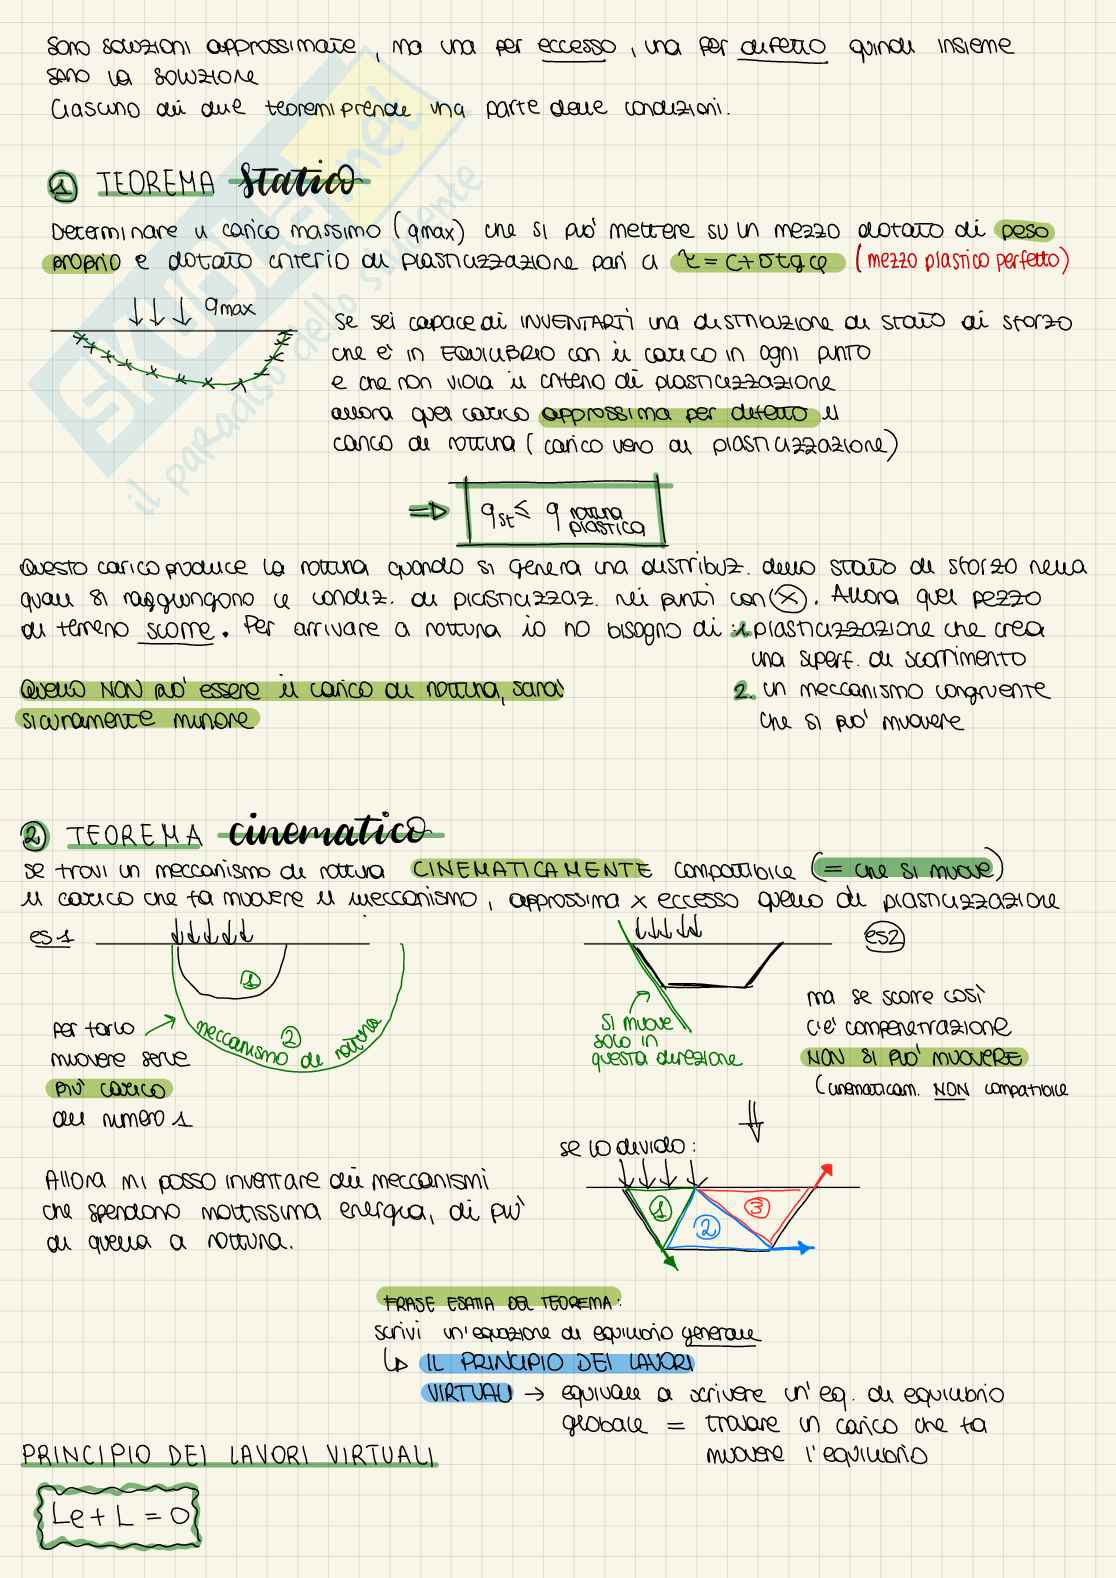 sono soluzioni approssimate, ma una per eccesso, una per difetto quindi insieme
sono la soluzione
Ciascuno dei due teoremi prende una parte delle condizioni.
1 TEOREMA statico
Determinare il carico massimo (qmax) che si può mettere su un mezzo dotato di peso
proprio e dotato criterio di plasticizzazione pari a τ = c + σ tg φ (mezzo plastico perfetto)
qmax
se sei capace di INVENTARTI una distribuzione di stato di sforzo
che è in EQUILIBRIO con il carico in ogni punto
e che non viola il criterio di plasticizzazione
allora quel carico approssima per difetto il
carico di rottura (carico vero di plasticizzazione)
⇒ qst ≤ q rottura plastica
Questo carico produce la rottura quando si genera una distribuz. dello stato di sforzo nella
quale si raggiungono le condiz. di plasticizzaz. nei punti con (x). Allora quel pezzo
di terreno scorre. Per arrivare a rottura io ho bisogno di: 1. plasticizzazione che crea
una superf. di scorrimento
Quello NON può essere il carico di rottura, sarà
2. un meccanismo congruente
sicuramente minore
che si può muovere
2 TEOREMA cinematico
se trovi un meccanismo di rottura CINEMATICAMENTE compatibile (= che si muove)
il carico che fa muovere il meccanismo, approssima x eccesso quello di plasticizzazione
es 1
es2
1
meccanismo di rottura
2
per farlo
muovere serve
più carico
del numero 1
si muove
solo in
questa direzione
ma se scorre così
c'è compenetrazione
NON SI PUÒ MUOVERE
(cinematicam. NON compatibile
se lo divido:
1
2
3
Allora mi posso inventare dei meccanismi
che spendono moltissima energia, di più
di quella a rottura.
FRASE ESATTA DEL TEOREMA:
scrivi un'equazione di equilibrio generale
↳ IL PRINCIPIO DEI LAVORI
VIRTUALI → equivale a scrivere un'eq. di equilibrio
globale = trovare un carico che fa
muovere l'equilibrio
PRINCIPIO DEI LAVORI VIRTUALI
Le + L = 0
SKUOLA.net
il paradiso dello studente